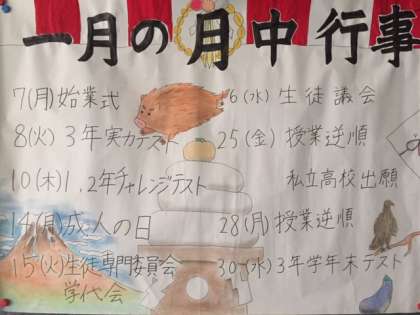 一月の月中行事
7(月)始業式
8(火)3年実力テスト
10(木)1,2年チャレンジテスト
14(月)成人の日
15(火)生徒専門委員会
学代会
6(水)生徒議会
25(金)授業逆順
私立高校出願
28(月)授業逆順
30(水)3年学年末テスト